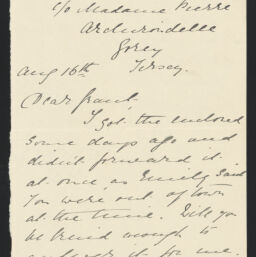 c/o Madame Pierre
Archirondelle
Gorey
Aug 16th Jersey.
Dear Grant,
I got the enclosed
some days ago and
didn't forward it
at once, as Emily said
you were out of town
at the time. Will you
be kind enough to
it for me.